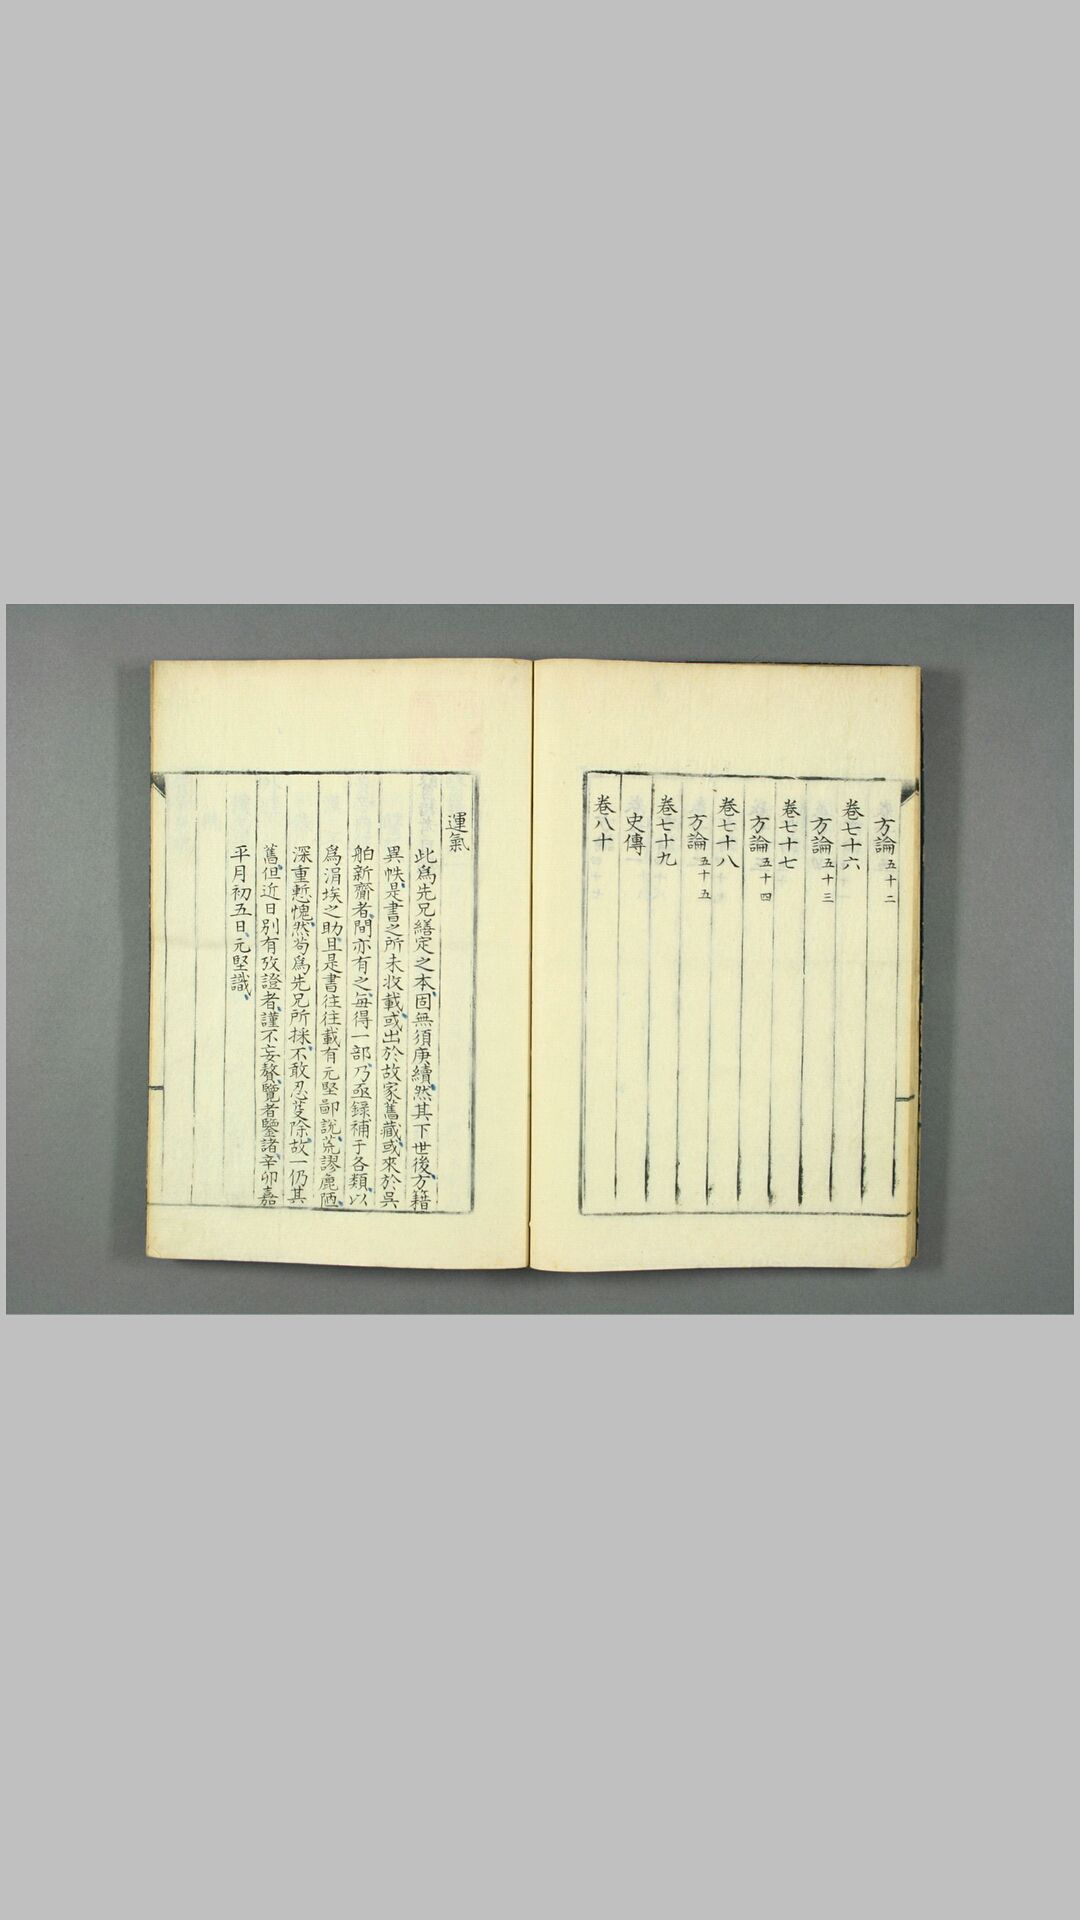 方論五十二
卷七十六
方論五十三
卷七十七
方論五十四
卷七十八
方論五十五
卷七十九
史傳
卷八十
運氣
此爲先兄繕定之本、固無須庚續、然其下世後、方籍
異帙、是書之所未收載、或出於故家舊藏、或來於吳
舶新齎者、間亦有之、每得一部、乃亟録補于各類、以
爲涓埃之助、且是書往往載有元堅鄙說、荒謬麁陋、
深重慙愧、然尚爲先兄所採、不敢忍芟除、故一仍其
舊、但近日別有攷證者、謹不妄贅、覽者鑒諸、辛卯嘉
平月初五日、元堅識、